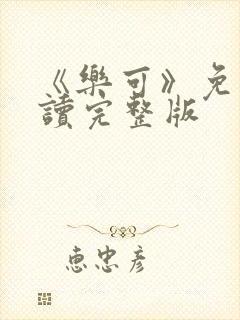 《樂可》免
讀完整版
惠忠彥